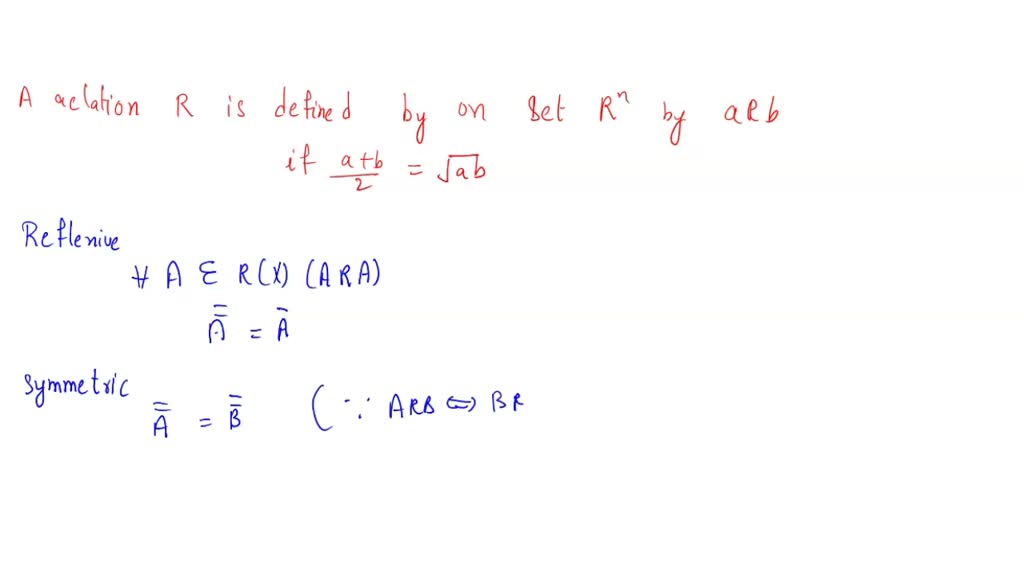 A aelation R is defined by on set Rⁿ by aRb
if a+b/2 = √ab
Reflenive
∀ A Ɛ R(X) (ARA)
A̿ = A̅
Symmetric
A̿ = B̿ (∵ ARB ⇔ BR